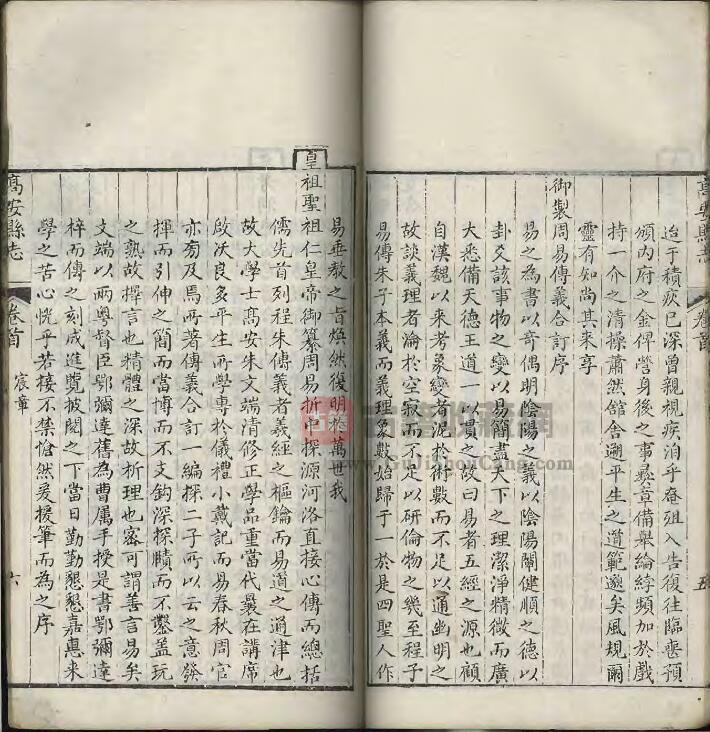 高安縣志
卷首
五
迨于積疾已深曾親視疾洎乎眷殂入告復往臨喪預
頒內府之金俾營身後之事彝章備舉綸綍頻加於戲
持一介之清操蕭然館舍遡平生之道範邈矣風規爾
靈有知尚其來享
御製周易傳義合訂序
易之為書以奇偶明陰陽之義以陰陽闡健順之德以
卦爻該事物之變以易簡盡天下之理潔淨精微而廣
大悉備天德王道一以貫之故曰易者五經之源也顧
自漢魏以來考象變者泥於術數而不足以通幽明之
故談義理者淪於空寂而不足以研倫物之幾至程子
易傳朱子本義而義理象數始歸于一於是四聖人作
易垂教之旨煥然復明於萬世我
皇祖聖祖仁皇帝御纂周易折中探源河洛直接心傳而總括
儒先首列程朱傳義者義經之樞鑰而易道之通津也
故大學士高安朱文端清修正學品重當代曩在講席
啟沃良多平生所學專於儀禮小戴記而易春秋周官
亦旁及焉所著傳義合訂一編採二子所以云之意發
揮而引伸之簡而當博而不支鈎深探賾而不鑿盖玩
之熟故擇言也精體之深故析理也密可謂善言易矣
文端以兩粵督臣鄂彌達舊為曹属手授是書鄂彌達
梓而傳之刻成進覽披閱之下當日勤勤懇懇嘉惠来
學之苦心恍乎若接不禁愴然爰援筆而為之序
高安縣志
卷首
宸章
六
古籍收藏網
www.GuJiShouCang.com